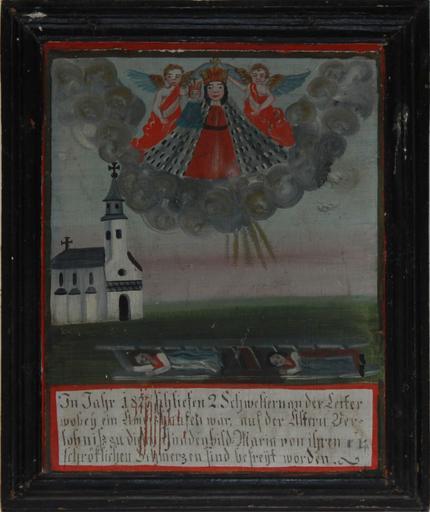 In Jahr 18 schliefen 2. Schwestern an der Leiter
wobey ein war, auf der Ältern Ver-
sobniß zu die Gnadenbild Maria von ihren
schröklichen Schmerzen sind befreyt worden.